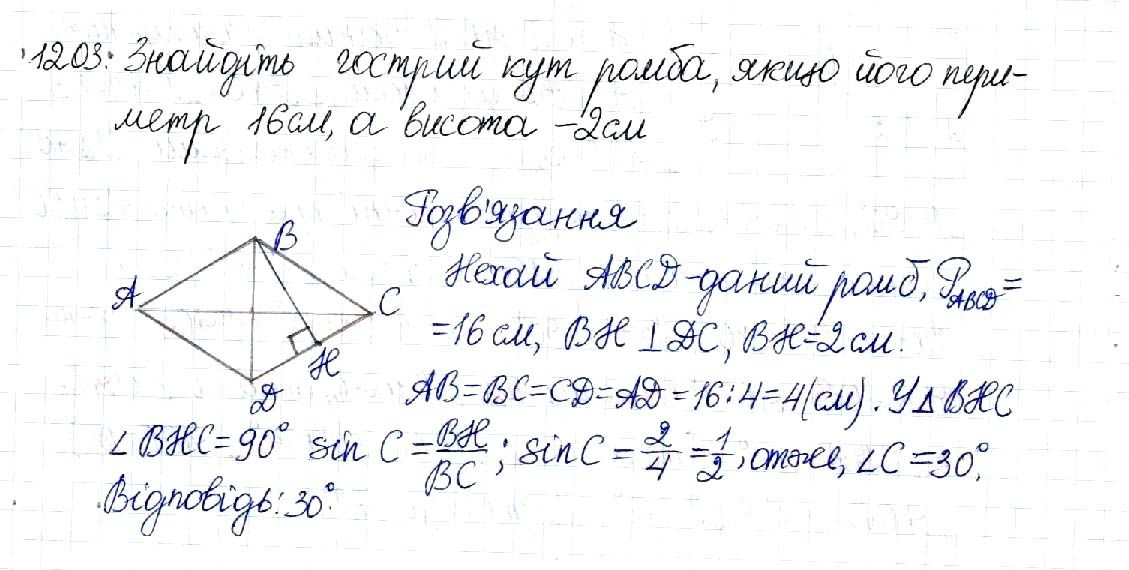 1203. Знайдіть гострий кут ромба, якщо його пери-
метр 16см, а висота –2см
Розв'язання
B
A
C
H
D
Нехай ABCD-даний ромб, P_ABCD =
=16 см, BH ⊥ DC, BH=2 см.
AB=BC=CD=AD=16:4=4(см). У △ BHC
∠BHC=90° sin C = BH/BC; sin C = 2/4 = 1/2, отже, ∠C=30°.
Відповідь: 30°.